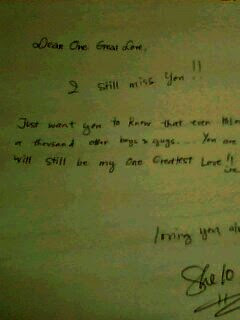 Dear One Great Love,
I still miss you !!
Just want you to know that even
a thousand other boys & guys.... You are
will still be my One Greatest Love !!
loving you